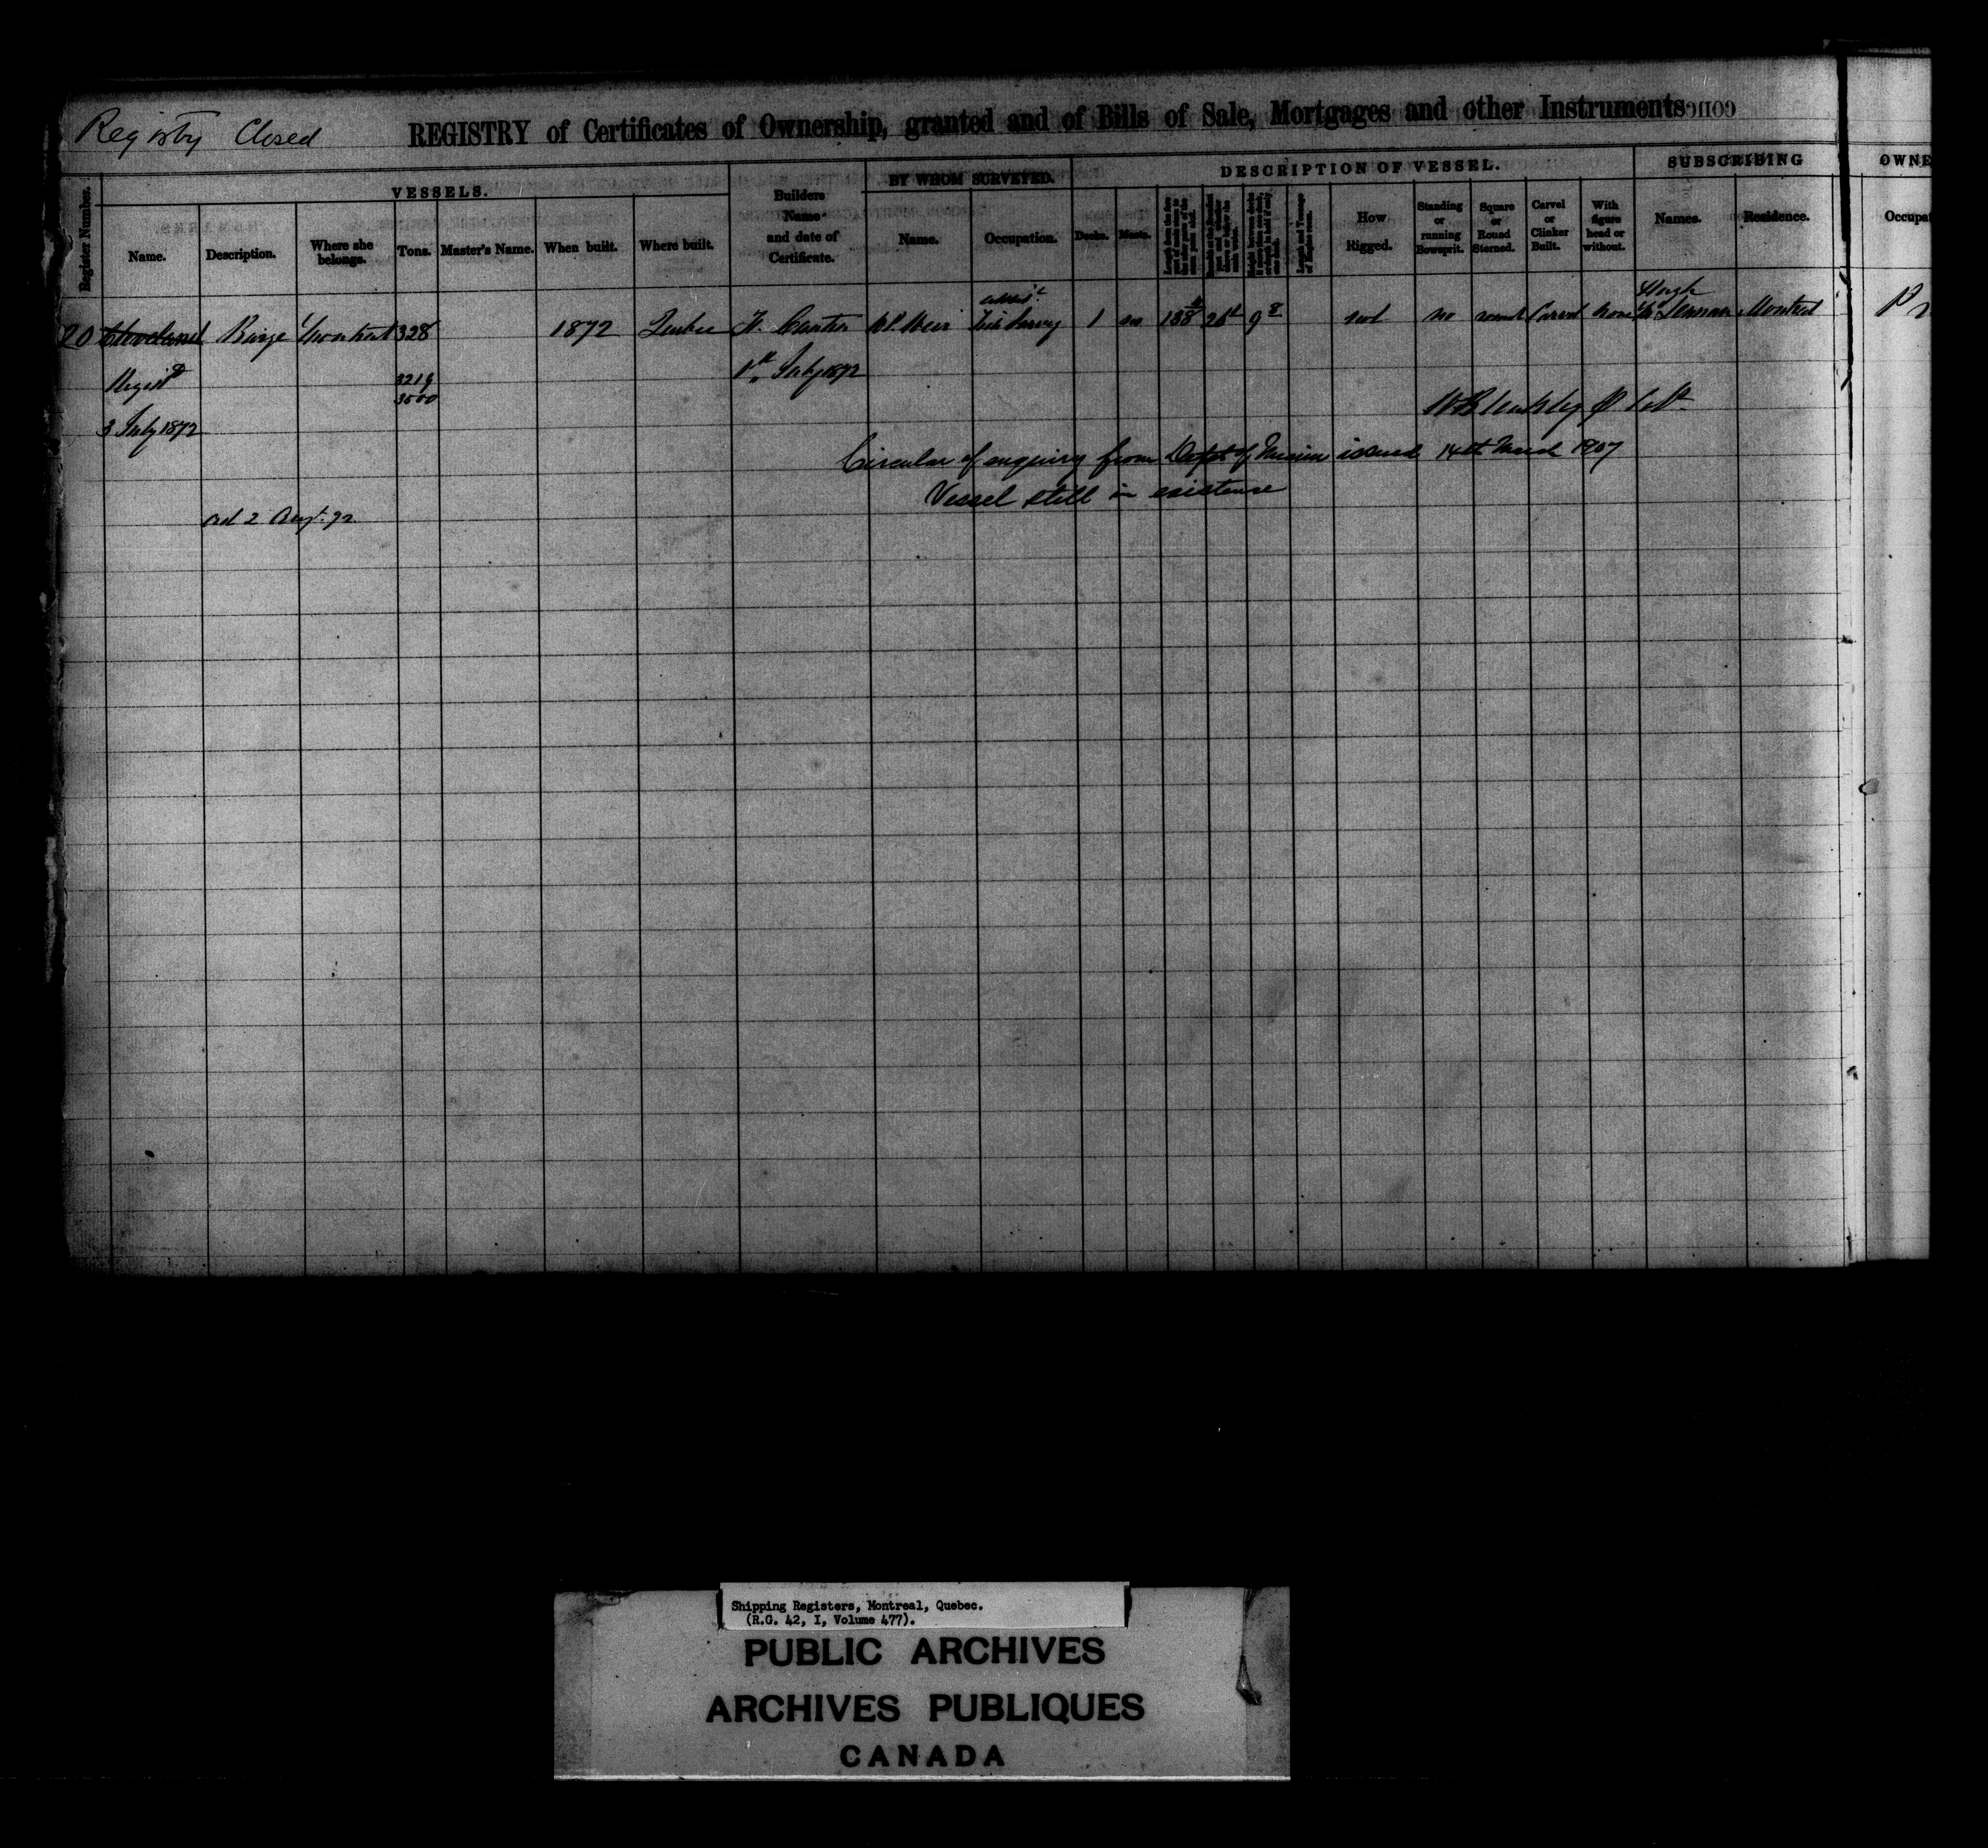 Registry Closed
REGISTRY of Certificates of Ownership, granted and of Bills of Sale, Mortgages and other Instruments conc
Register Number.
VESSELS.
Name.
Description.
Where she belongs.
Tons.
Master's Name.
When built.
Where built.
Builders Name and date of Certificate.
BY WHOM SURVEYED.
Name.
Occupation.
DESCRIPTION OF VESSEL.
Decks.
Masts.
How Rigged.
Standing or running Bowsprit.
Square or Round Sterned.
Carvel or Clinker Built.
With figure head or without.
SUBSCRIBING
Names.
Residence.
OWNE
Occupat
20 Cleveland Barge Montreal 328 1872 Quebec W. P. Weir 1 no 9 8 not no round Carvel none Hugh McLennan Montreal
Regist'd
3219
3500
1st July 1872
3 July 1872
Circular of enquiry from Dept of Marine issued 14th March 1907
Vessel still in existence
2 Augt. 72
Shipping Registers, Montreal, Quebec.
(R.G. 42, I, Volume 477).
PUBLIC ARCHIVES
ARCHIVES PUBLIQUES
CANADA